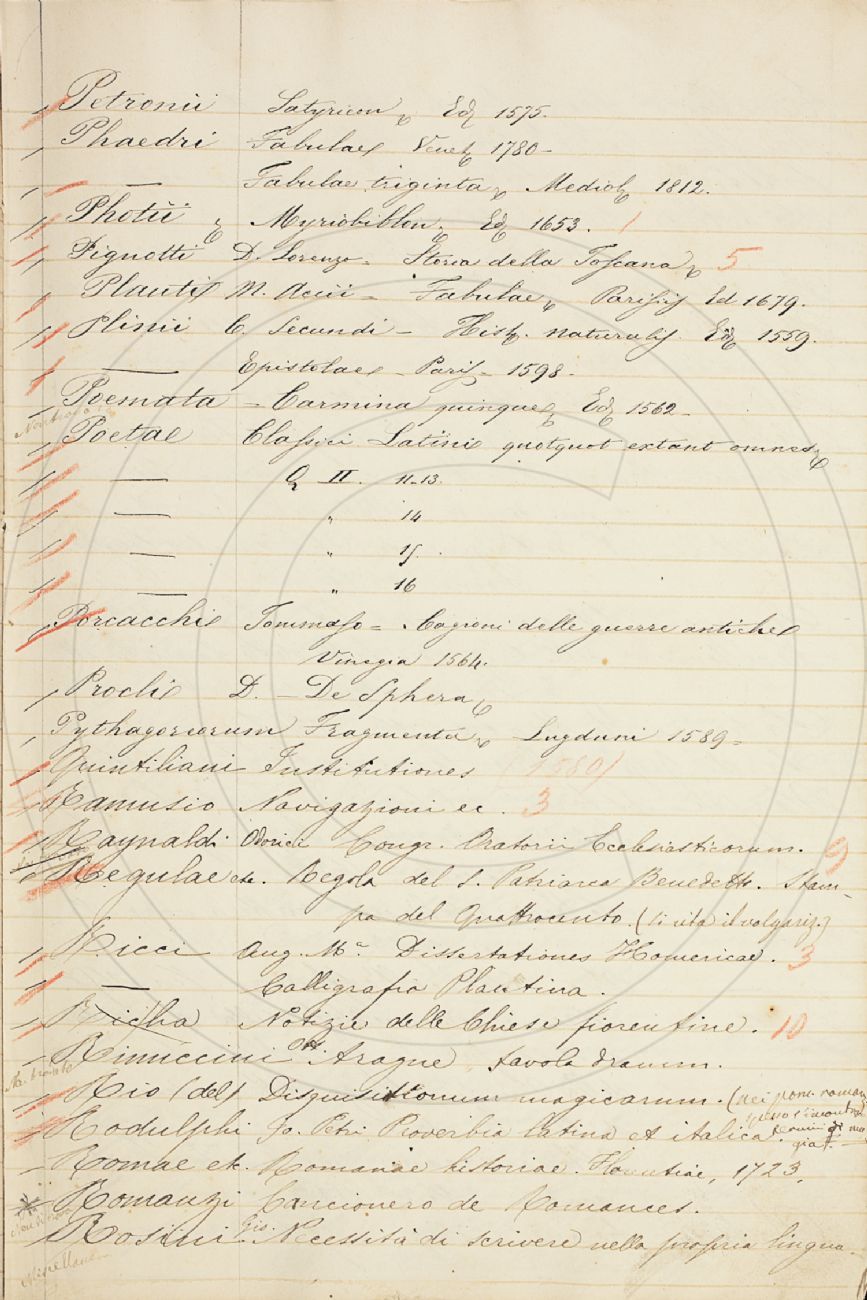 Petronii Satyricon Ed 1575.
Phaedri Fabulae Venet 1780 -
— Fabulae triginta Mediol 1812.
Photii Myriobiblon. Ed 1653. 1
Pignotti D. Lorenzo = Storia della Toscana 5
Plauti M. Accii = Fabulae Parisiis Ed 1679.
Plinii C. Secundi - Hist. naturalis. Ed 1559.
— Epistolae - Paris - 1598 -
Poemata - Carmina quinque Ed 1562 -
Poetae Classici Latini quotquot extant omnes
— Q II. 11-13.
— " 14
— " 15.
— " 16
Porcacchi Tommaso = Cagioni delle guerre antiche
Vinegia 1564.
Procli D. - De Sphera
Pythagoreorum Fragmenta Lugduni 1589 =
Quintiliani Institutiones 1580
Ramusio Navigazioni ec. 3
Raynaldi Odorici Congr. Oratorii Ecclesiasticorum. 9
Regulae etc. Regola del S. Patriarca Benedetto. Stam-
pa del Quattrocento. (Si cita il volgariz.)
Ricci Aug. Ma. Dissertationes Homericae. 3
— Calligrafia Plautina.
Richa Notizie delle Chiese fiorentine. 10
Rinuccini Ott. Aragne, favola dramm.
Rio (del) Disquisitionum magicarum. (nei poni. roman
Rodulphi Jo. Petri Proverbia latina et italica.
Romae etc. Romanae historiae. Florentiae, 1723.
Romanzi Cancionero de Romances.
Rosini Gio. Necessità di scrivere nella propria lingua.
Miscellanea